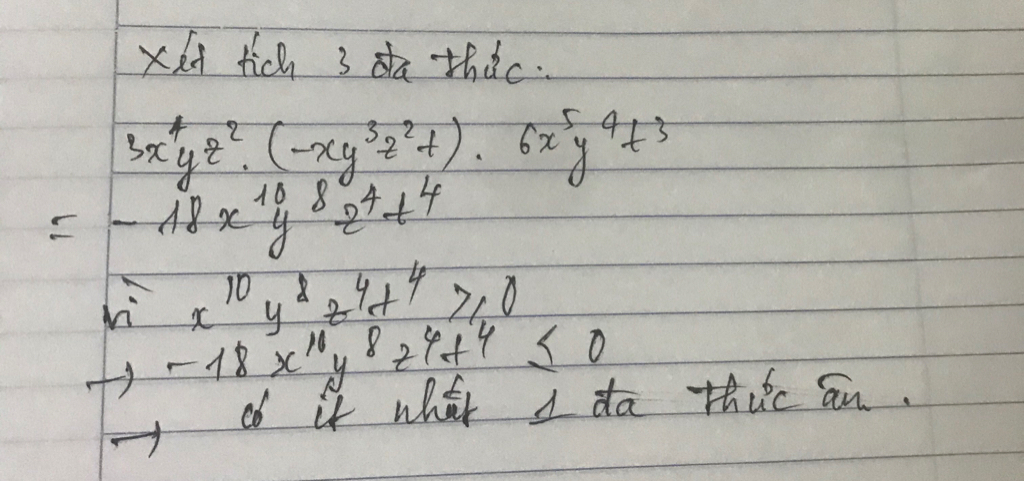 Xét tích 3 đa thức:
3x⁴yz². (-xy³z²t). 6x⁵y⁴t³
= -18x¹⁰y⁸z⁴t⁴
Vì x¹⁰y⁸z⁴t⁴ ≥ 0
→ -18x¹⁰y⁸z⁴t⁴ ≤ 0
→ có ít nhất 1 đa thức âm.